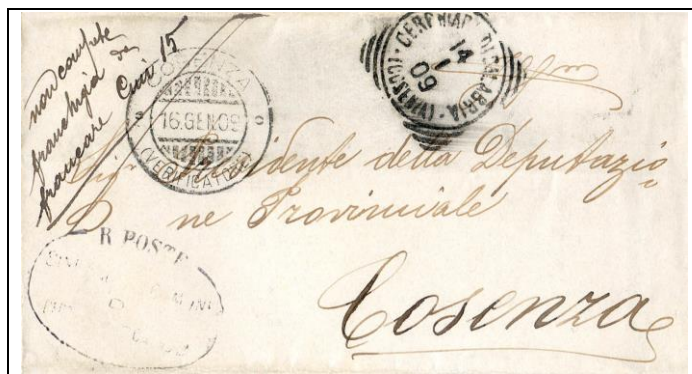 non compete
franchigia da
francare Cent 15
COSENZA
16.GEN.09
(VERIFICATORE)
CERCHIARA DI CALABRIA · (COSENZA) ·
14
1
09
Sig. Presidente della Deputazio
ne Provinciale
Cosenza
R. POSTE